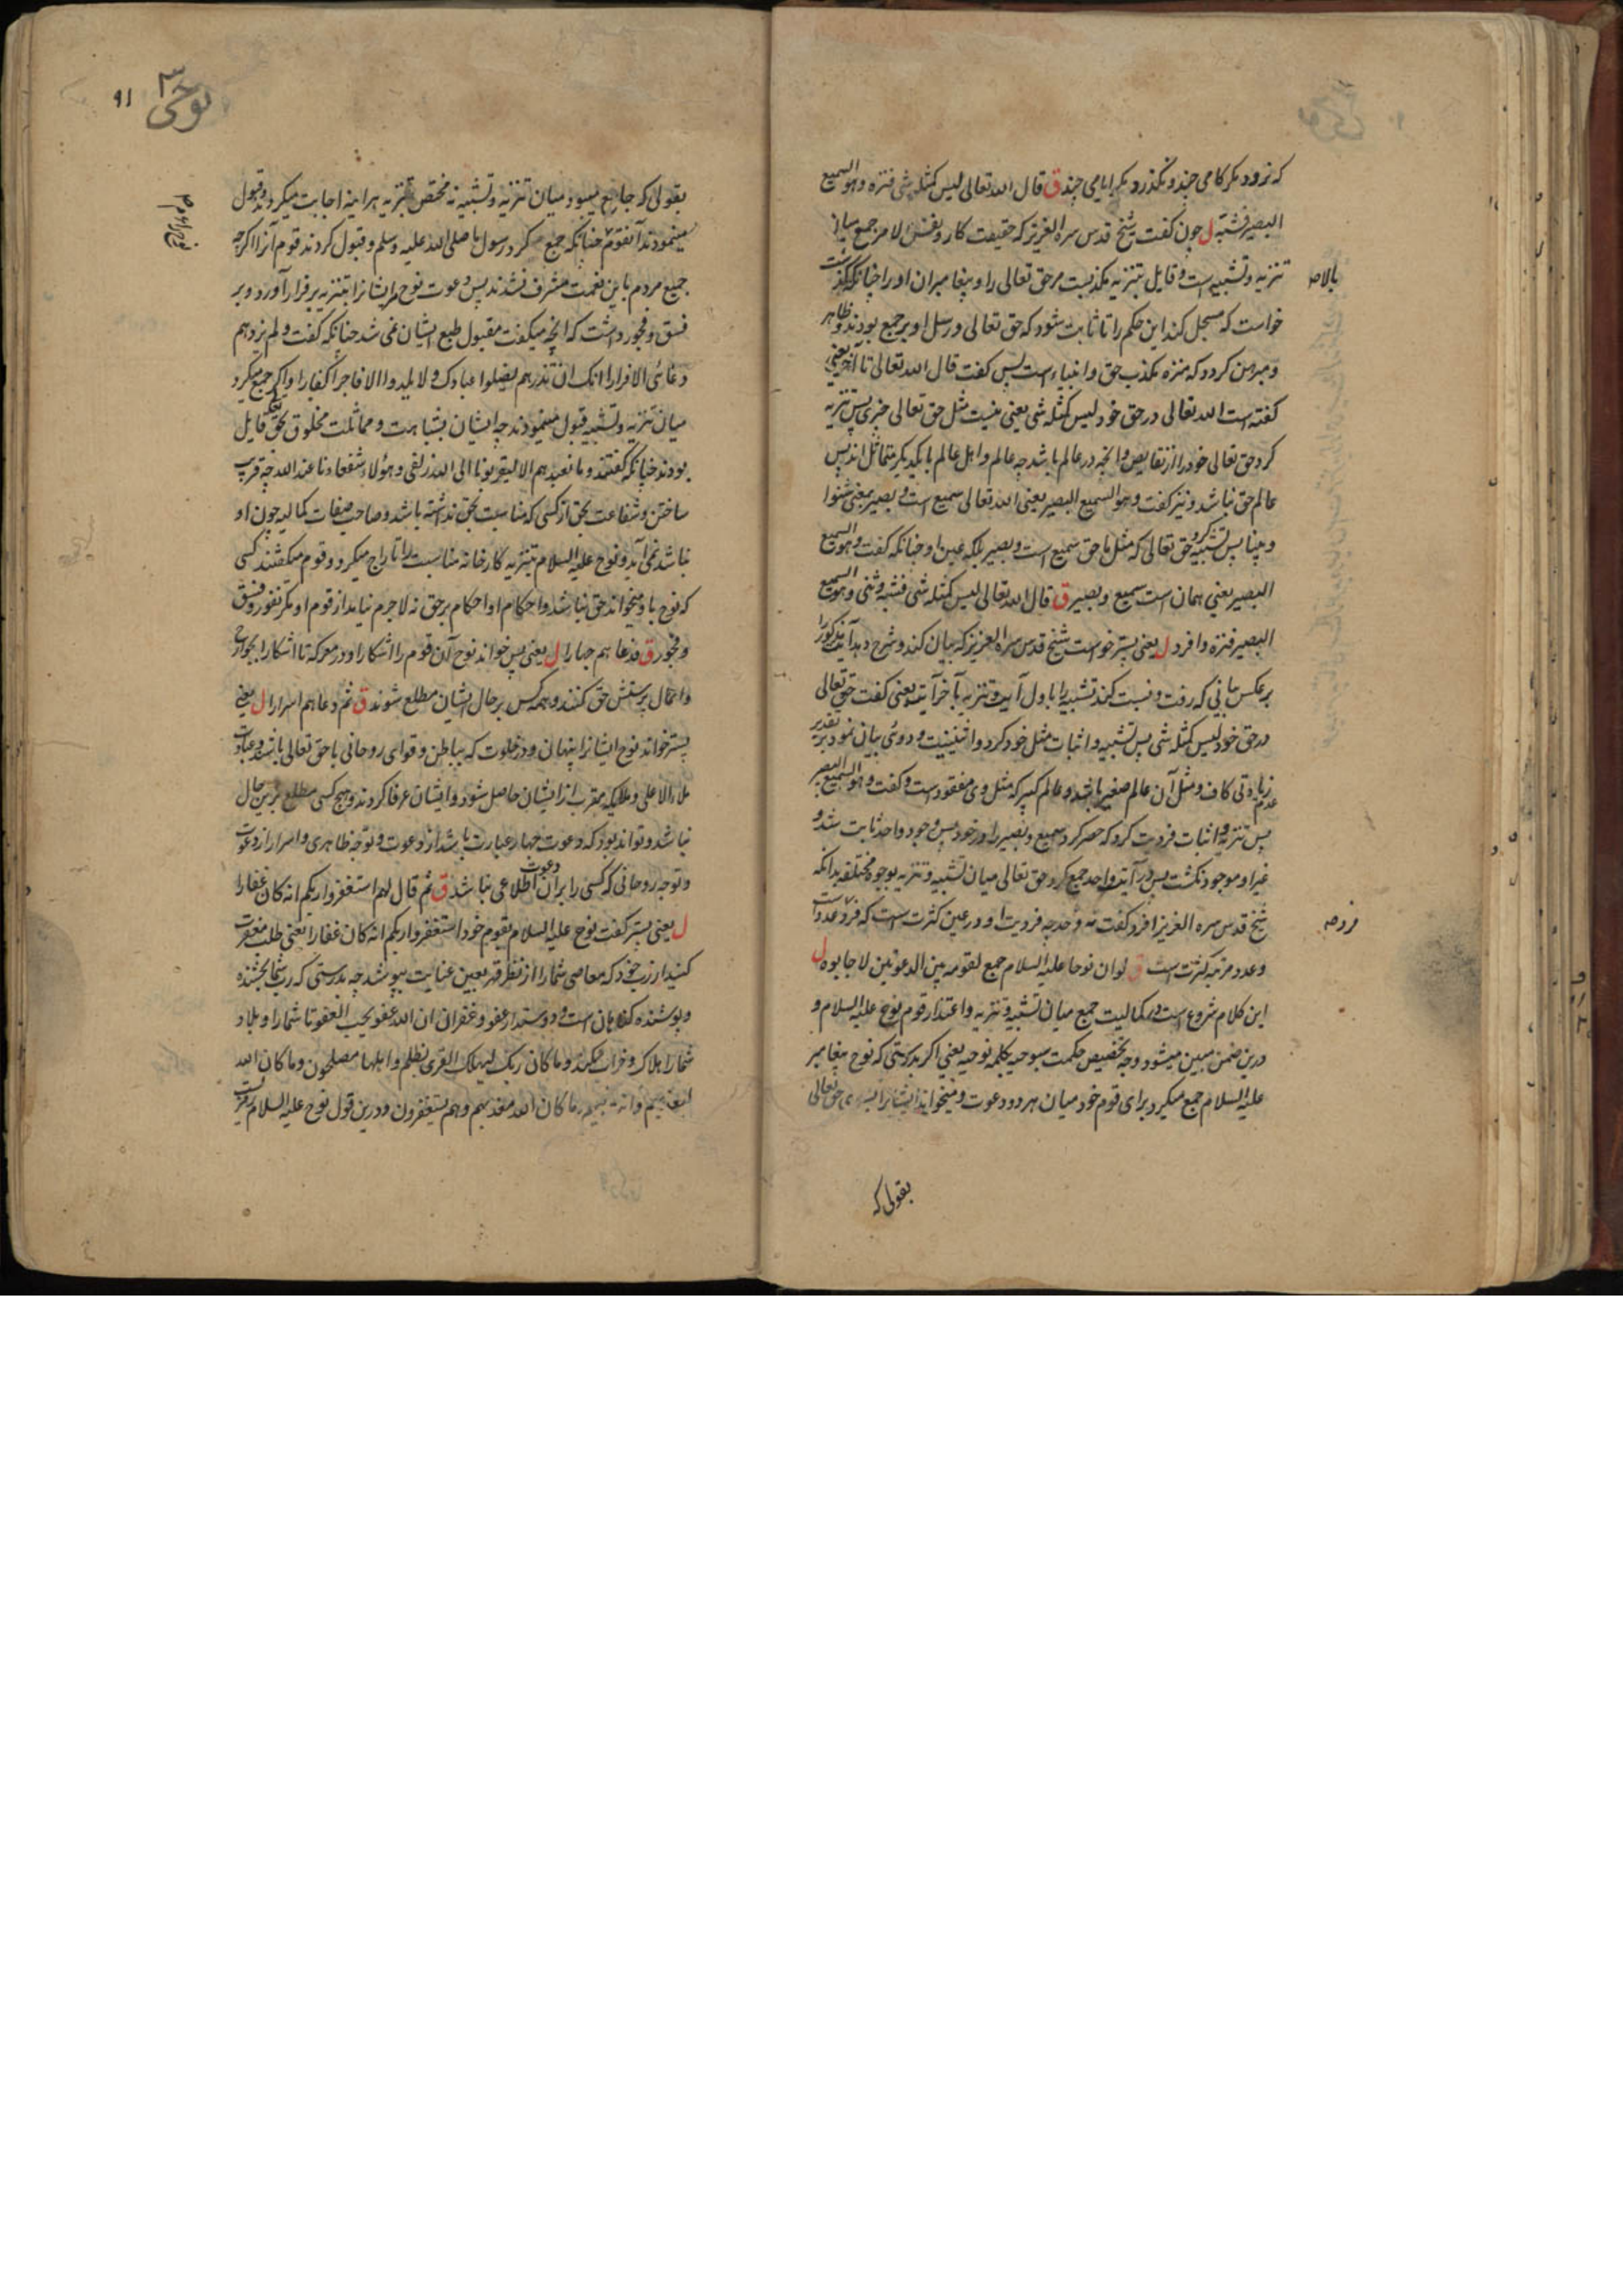 که نرود مکر کامی چند و نکذرد مکر ایامی چند ق قال الله تعالی لیس کمثله شی فنزه وهو السمیع
البصیر فشبه ل چون کفت شیخ قدس سره العزیز که حقیقت کار و نفس الامر جمع میان
تنزیه و تشبیه است و قایل بتنزیه مکذبست مر حق تعالی را و پیغامبران او را چنانکه کذشت
خواست که مسجل کند این حکم را تا ثابت شود که حق تعالی و رسل او بر جمع بودند و ظاهر
و مبرهن کردد که منزه مکذب حق و انبیاء است پس کفت قال الله تعالی تا آخر یعنی
کفته است الله تعالی در حق خود لیس کمثله شی یعنی نیست مثل حق تعالی چیزی پس تنزیه
کرد حق تعالی خود را از نقایص و انچه در عالم باشد چه عالم و اهل عالم با یکدیکر متماثل اند پس
عالم حق نباشد و نیز کفت وهو السمیع البصیر یعنی الله تعالی سمیع است و بصیر یعنی شنوا
و بینا پس تشبیه کرد حق تعالی که مثل ما حق سمیع است و بصیر بلکه عین او چنانکه کفت وهو السمیع
البصیر یعنی همان است سمیع و بصیر ق قال الله تعالی لیس کمثله شی فشبه وثنی وهو السمیع
البصیر فنزه وافرد ل یعنی پستر خواست شیخ قدس سره العزیز که بیان کند و شرح دهد آیت مذکور را
بر عکس بیانی که رفت و نسبت کند تشبیه را باول آیت و تنزیه بآخر آیت یعنی کفت حق تعالی
در حق خود لیس کمثله شی پس تشبیه و اثبات مثل خود کرد و اثنینیت و دوئی بیان نمود بر تقدیر
عدم زیادتی کاف و مثل آن عالم صغیر باشد و عالم کبیر که مثل وی مفقود است و کفت وهو السمیع البصیر
پس تنزیه و اثبات فردیت کرد که حصر کرد سمیع و بصیر را در خود پس وجود واحد ثابت شد و
غیر او موجود نکشت پس در آیت واحد جمع کرد حق تعالی میان تشبیه و تنزیه بوجوه مختلفه بدانکه
شیخ قدس سره العزیز افرد کفت نه وحد چه فردیت او در عین کثرت است که فرد عدد است
و عدد مرتبه کثرت است ق لو ان نوحا علیه السلام جمع لقومه بین الدعوتین لاجابوه ل
این کلام شروع است در کمالیت جمع میان تشبیه و تنزیه و اعتذار قوم نوح علیه السلام و
درین ضمن مبین میشود وجه تخصیص حکمت سبوحیه بکلمه نوحیه یعنی اکر بدرستی که نوح پیغامبر
علیه السلام جمع میکرد برای قوم خود میان هر دو دعوت و میخواند ایشانرا بسوی حق تعالی
بالاصه
فرد صه
بقولی که
نوحی
٩١
بقولی که جامع میبود میان تنزیه و تشبیه نه مختص بتنزیه هراینه اجابت میکردند و قبول
مینمودند آنقوم چنانکه جمع کرد رسول ما صلی الله علیه وسلم و قبول کردند قوم آنرا اکرچه
جمیع مردم باین نعمت مشرف نشدند پس دعوت نوح مر ایشانرا بتنزیه بر فرار آورد و بر
فسق و فجور داشت که انچه میکفت مقبول طبع ایشان نمی شد چنانکه کفت و لم یزدهم
دعائی الا فرارا انک ان تذرهم یضلوا عبادک ولا یلدوا الا فاجرا کفارا و اکر جمع میکرد
میان تنزیه و تشبیه قبول مینمودند چه ایشان بمشابهت و مماثلت مخلوق بحق قایل
بودند چنانکه کفتند وما نعبدهم الا لیقربونا الی الله زلفی وهؤلاء شفعاءنا عند الله چه قریب
ساختن و شفاعت بحق از کسی که مناسبت بحق نداشته باشد و صاحب صفات کمالیه چون او
نباشد نمی آید و نوح علیه السلام بتنزیه کارخانه مناسبت را تاراج میکرد و قوم میکفتند کسی
که نوح باو میخواند حق نباشد و احکام او احکام بر حق نه لاجرم نیامد از قوم او مکر نفور و فسق
و فجور ق فدعاهم جهارا ل یعنی پس خواند نوح آن قوم را اشکارا و در معرکه تا اشکارا بجوارح
و اعمال پرستش حق کنند و همه کس بر حال ایشان مطلع شوند ق ثم دعاهم اسرارا ل یعنی
پستر خواند نوح ایشانرا پنهان و در خلوت که بباطن و قوای روحانی با حق تعالی باشند و عبادت
ملاء الاعلی و ملایکه مقرب از ایشان حاصل شود و ایشان عرفا کردند و هیچ کسی مطلع برین حال
نباشد و تواند بود که دعوت جهار عبارت باشد از دعوت و توجه ظاهری و اسرار از دعوت
و توجه روحانی که کسی را بران دعوت اطلاعی نباشد ق ثم قال لهم استغفروا ربکم انه کان غفارا
ل یعنی پستر کفت نوح علیه السلام بقوم خود استغفروا ربکم انه کان غفارا یعنی طلب مغفرت
کنید از رب خود که معاصی شما را از نظر قهر بعین عنایت بپوشد چه بدرستی که رب شما بخشنده
و پوشنده کناهان است و دوستدار عفو و غفران ان الله عفو یحب العفو تا شما را و بلاد
شما را هلاک و خراب نکند وما کان ربک لیهلک القری بظلم واهلها مصلحون وما کان الله
لیعذبهم وانت فیهم وما کان الله معذبهم وهم یستغفرون و درین قول نوح علیه السلام